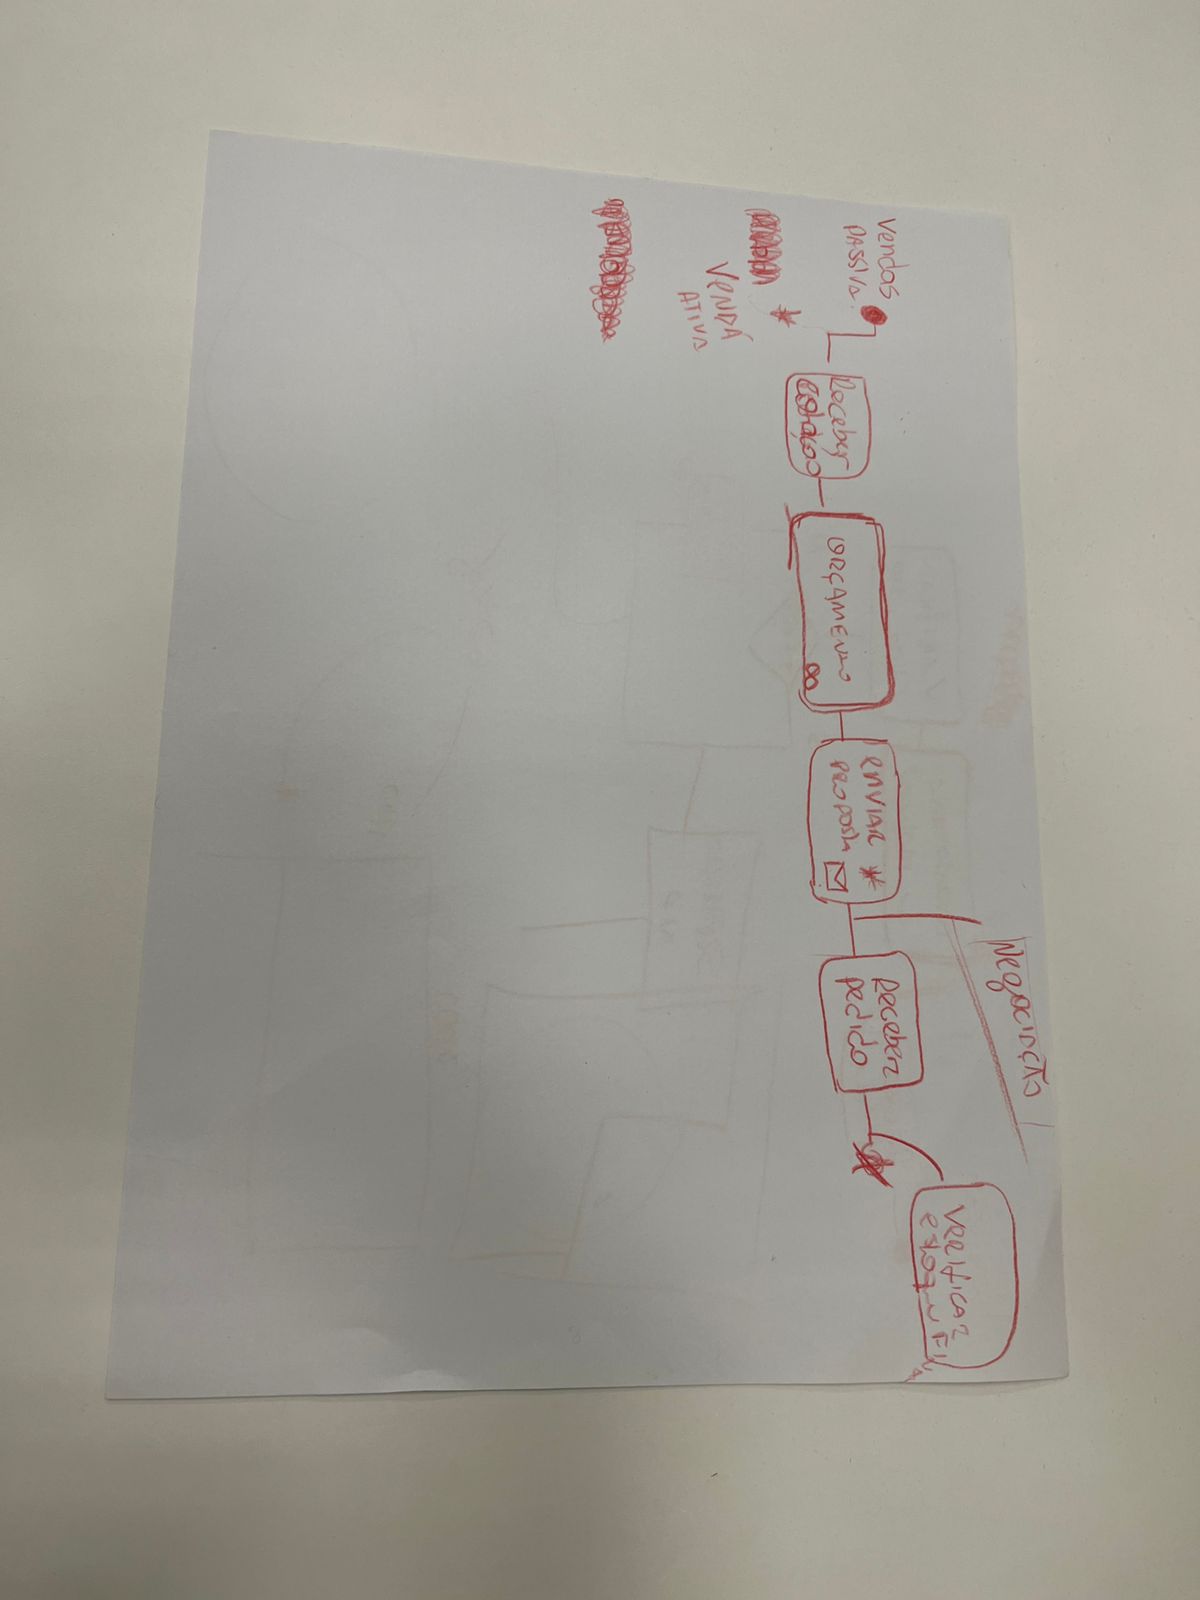 Vendas
PASSIVA.
VENDA
ATIVA
Receber
cotação
ORÇAMENTO
ENVIAR
PROPOSTA
Negociação
Receber
pedido
Verificar
estoque